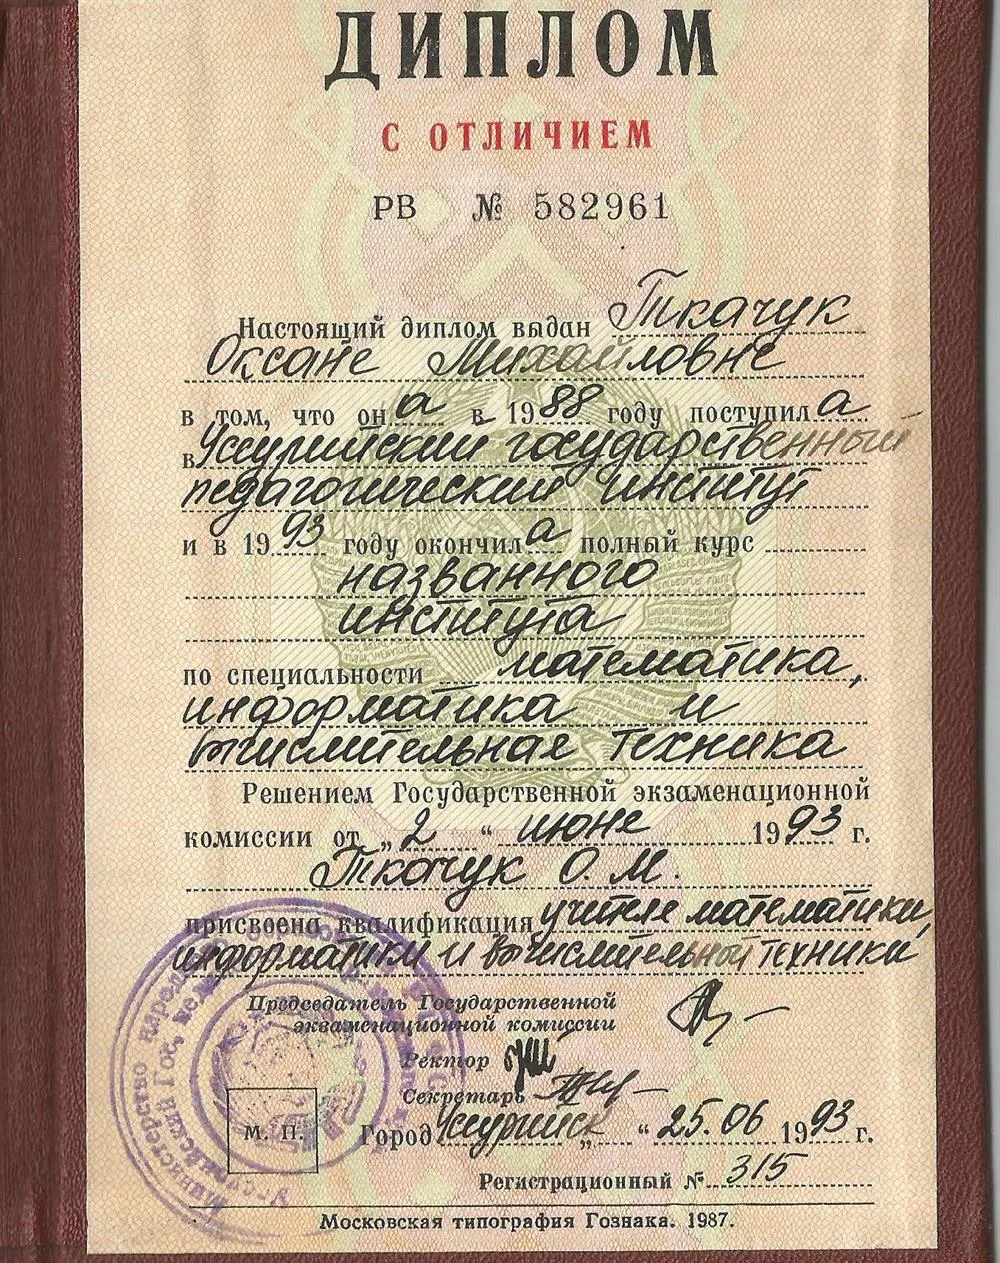 ДИПЛОМ
С ОТЛИЧИЕМ
РВ № 582961
Настоящий диплом выдан Ткачук
Оксане Михайловне
в том, что он а в 1988 году поступил а
в Уссурийский государственный
педагогический институт
и в 1993 году окончил а полный курс
названного
института
по специальности математика,
информатика и
вычислительная техника
Решением Государственной экзаменационной
комиссии от „2“ июне 1993 г.
Ткачук О. М.
присвоена квалификация учителя математики,
информатики и вычислительной техники
Председатель Государственной
экзаменационной комиссии
Ректор
Секретарь
М. П.
Город Уссурийск „ “ 25.06 1993 г.
Регистрационный № 315
Московская типография Гознака. 1987.
Министерство народного